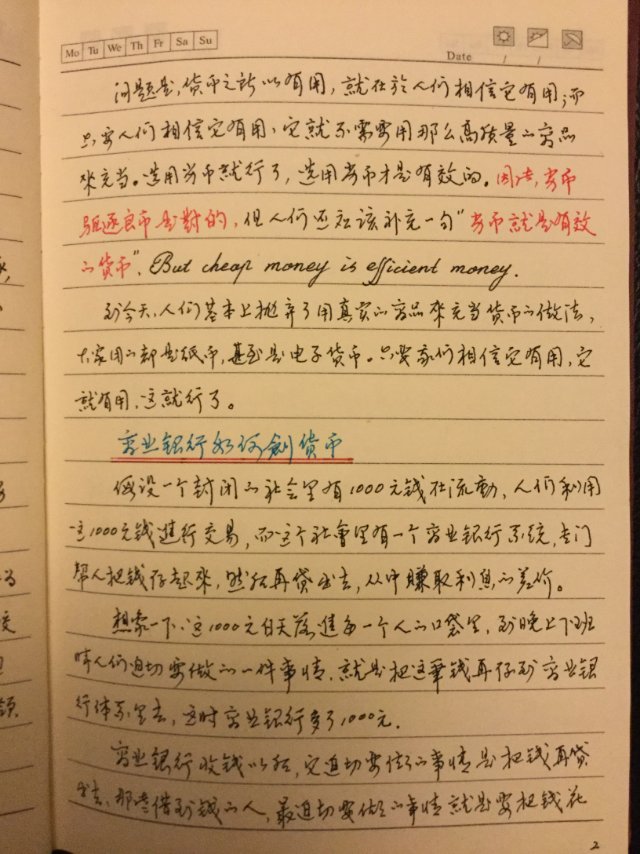 Mo Tu We Th Fr Sa Su
Date / /
问题是,货币之所以有用,就在於人们相信它有用;而
只要人们相信它有用,它就不需要用那么高质量的商品
来充当。选用劣币就行了,选用劣币才是有效的。因此,劣币
驱逐良币是對的,但人们还应该补充一句"劣币就是有效
的货币",But cheap money is efficient money.
到今天,人们基本上抛弃了用真实的商品来充当货币的做法,
大家用的都是纸币,甚至是电子货币。只要我们相信它有用,它
就有用,这就行了。
商业银行如何創货币
假设一个封闭的社会里有1000元钱在流動,人们利用
这1000元钱進行交易,而这个社會里有一个商业银行系统,专门
帮人把钱存起来,然后再贷出去,从中赚取利息的差价。
想象一下,这1000元白天落進每一个人的口袋里,到晚上下班
时人们迫切要做的一件事情,就是把这筆钱再存到商业银
行体系里去,这时商业银行多了1000元.
商业银行收钱以后,它迫切要做的事情是把钱再贷
出去,那些借到钱的人,最迫切要做的事情就是要把钱花
2